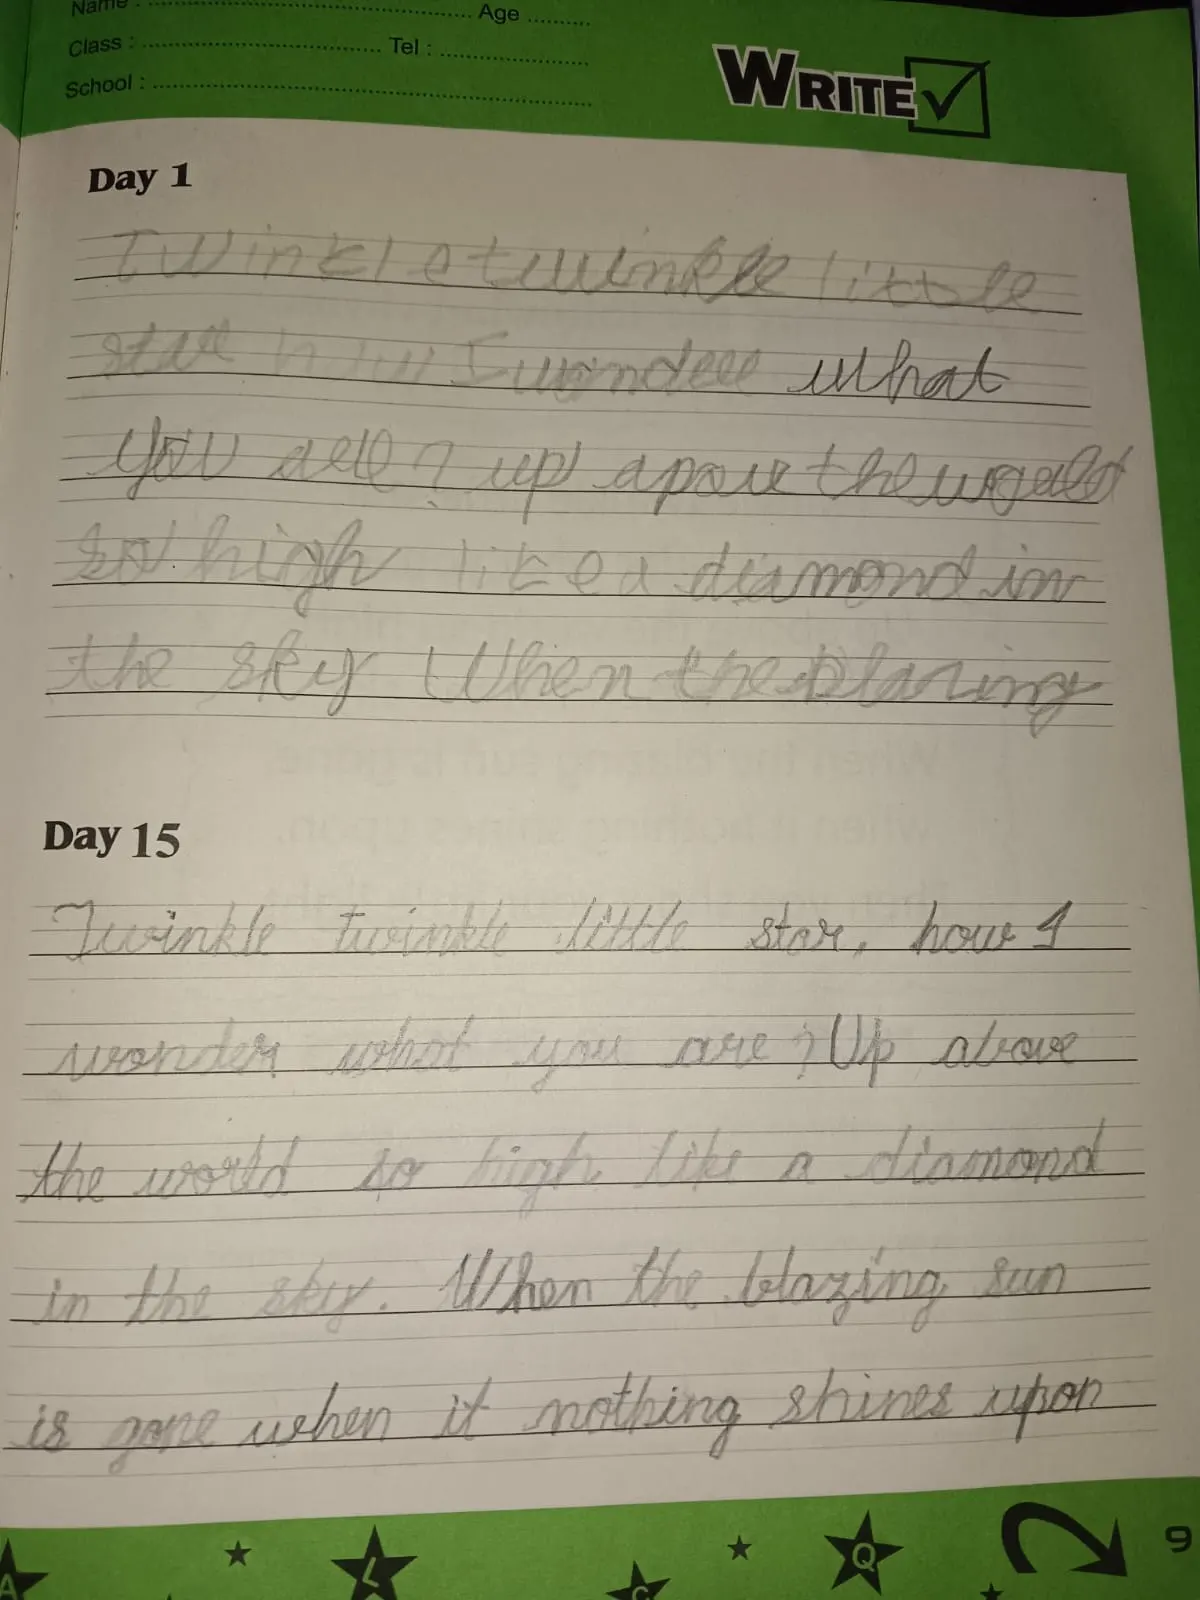 Name : Age
Class : Tel :
School :
WRITE
Day 1
Twinkle twinkle little
star how I wonder what
you are? up apove the world
so high like a diamond in
the sky When the blazing
Day 15
Twinkle twinkle little star, how I
wonder what you are? Up above
the world so high like a diamond
in the sky. When the blazing sun
is gone when it nothing shines upon
A L C Q 9